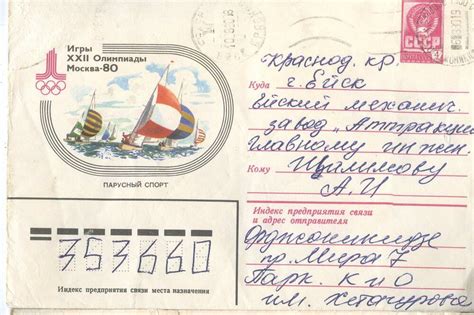 Игры
XXII Олимпиады
Москва-80
ПАРУСНЫЙ СПОРТ
СССР
4
Краснод. кр.
Куда
г. Ейск
Ейский механич.
завод "Аттракци
главному инжен.
Кому
Щилимову
А.И
Индекс предприятия связи
и адрес отправителя
Орджоникидзе
пр. Мира 7
Парк. К и О
им. Хетагурова
353660
Индекс предприятия связи места назначения